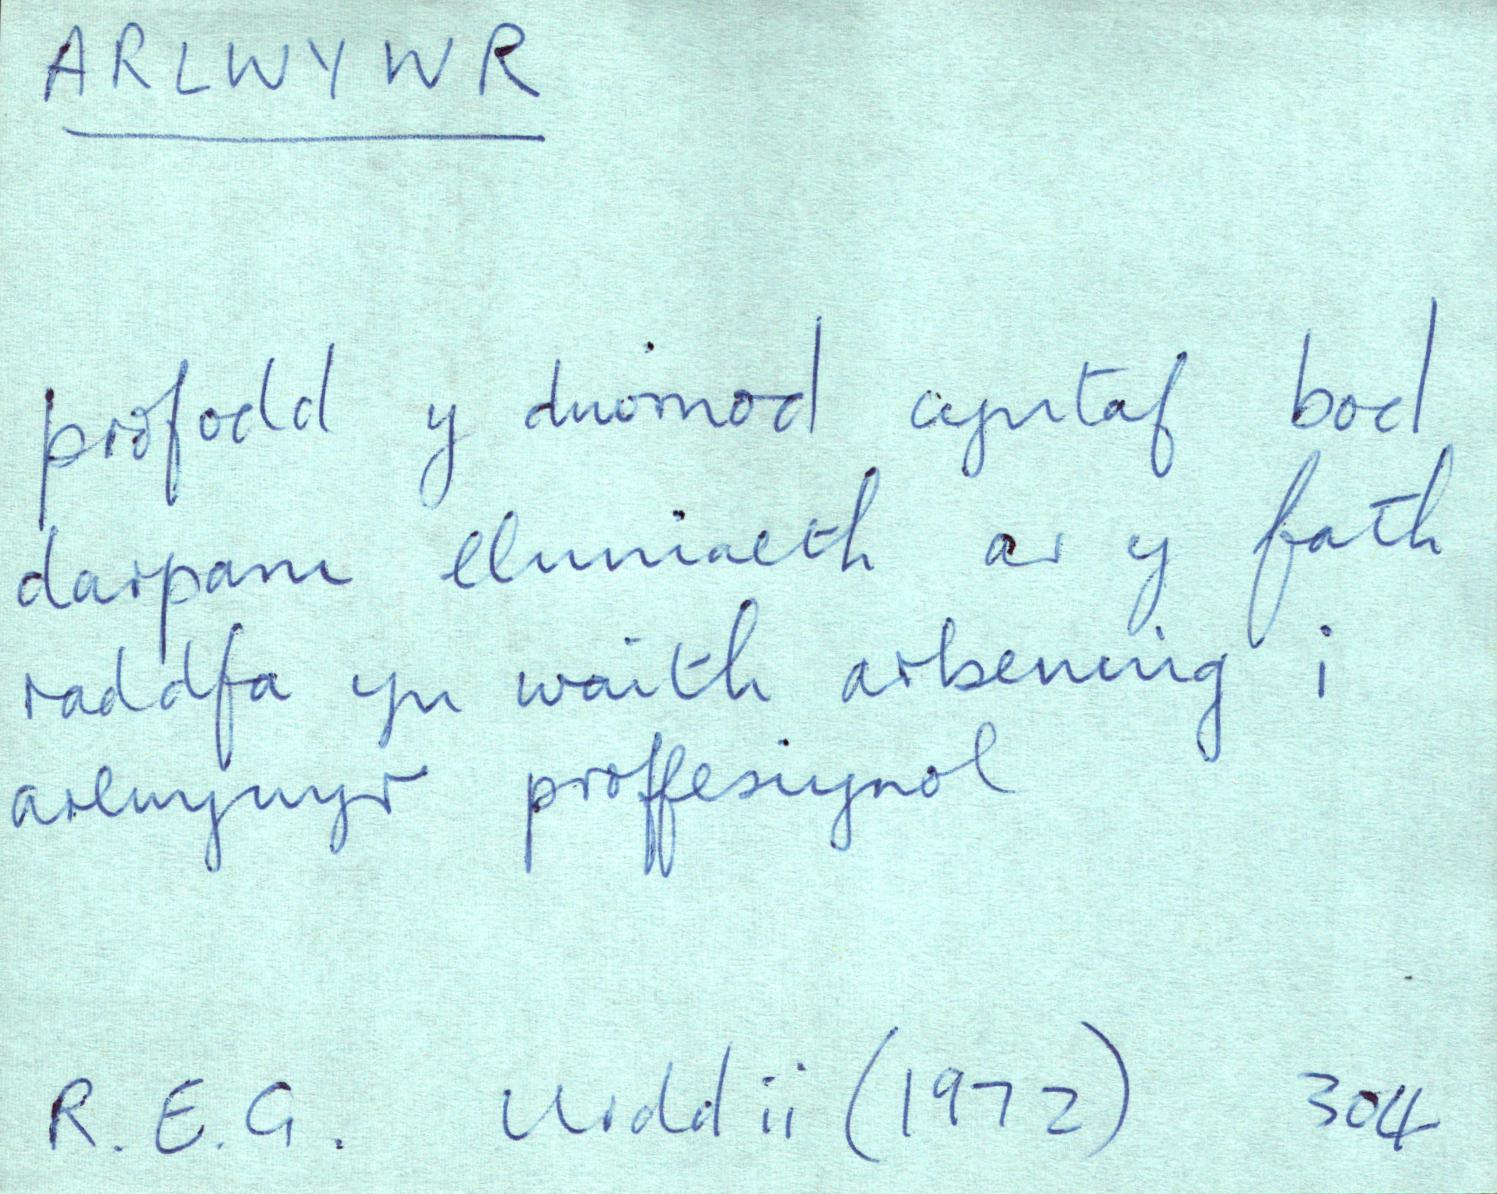 ARLWYWR
profodd y diwrnod cyntaf bod
darparu lluniaeth ar y fath
raddfa yn waith arbennig i
arlwywyr proffesiynol
R.E.G. Urdd ii (1972) 304